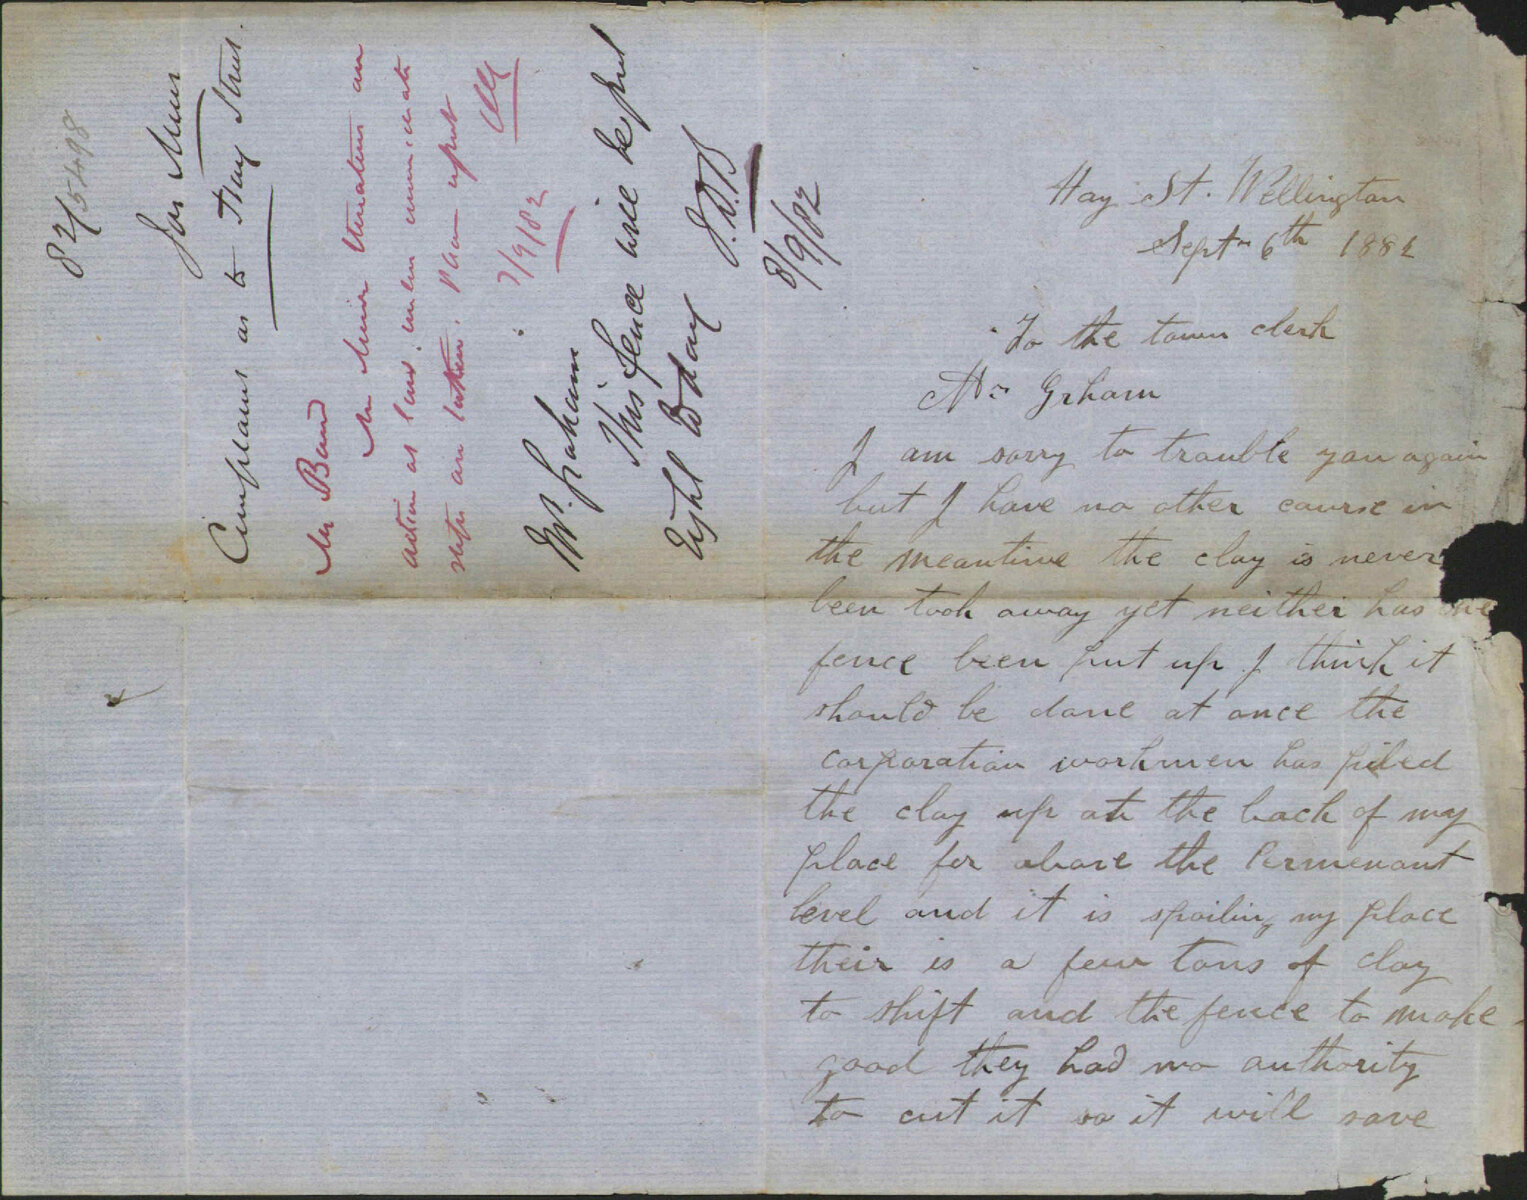 82/5498
Jas Muir
Complains as to Hay Street.
Mr Baird
Mr Muir threatens an
action at law, unless immediate
steps are taken. Please report
7/9/82
Mr. Graham
This fence will be put
right to day
J.D.B
8/9/82
Hay St. Wellington
Septr 6th 1882
To the town clerk
Mr Grham
I am sorry to trouble you again
but I have no other course in
the meantime the clay is never
been took away yet neither has the
fence been put up I think it
should be done at once the
corporation workmen has piled
the clay up at the back of my
place fer above the Permenant
level and it is spoiling my place
their is a few tons of clay
to shift and the fence to make
good they had no authority
to cut it so it will save